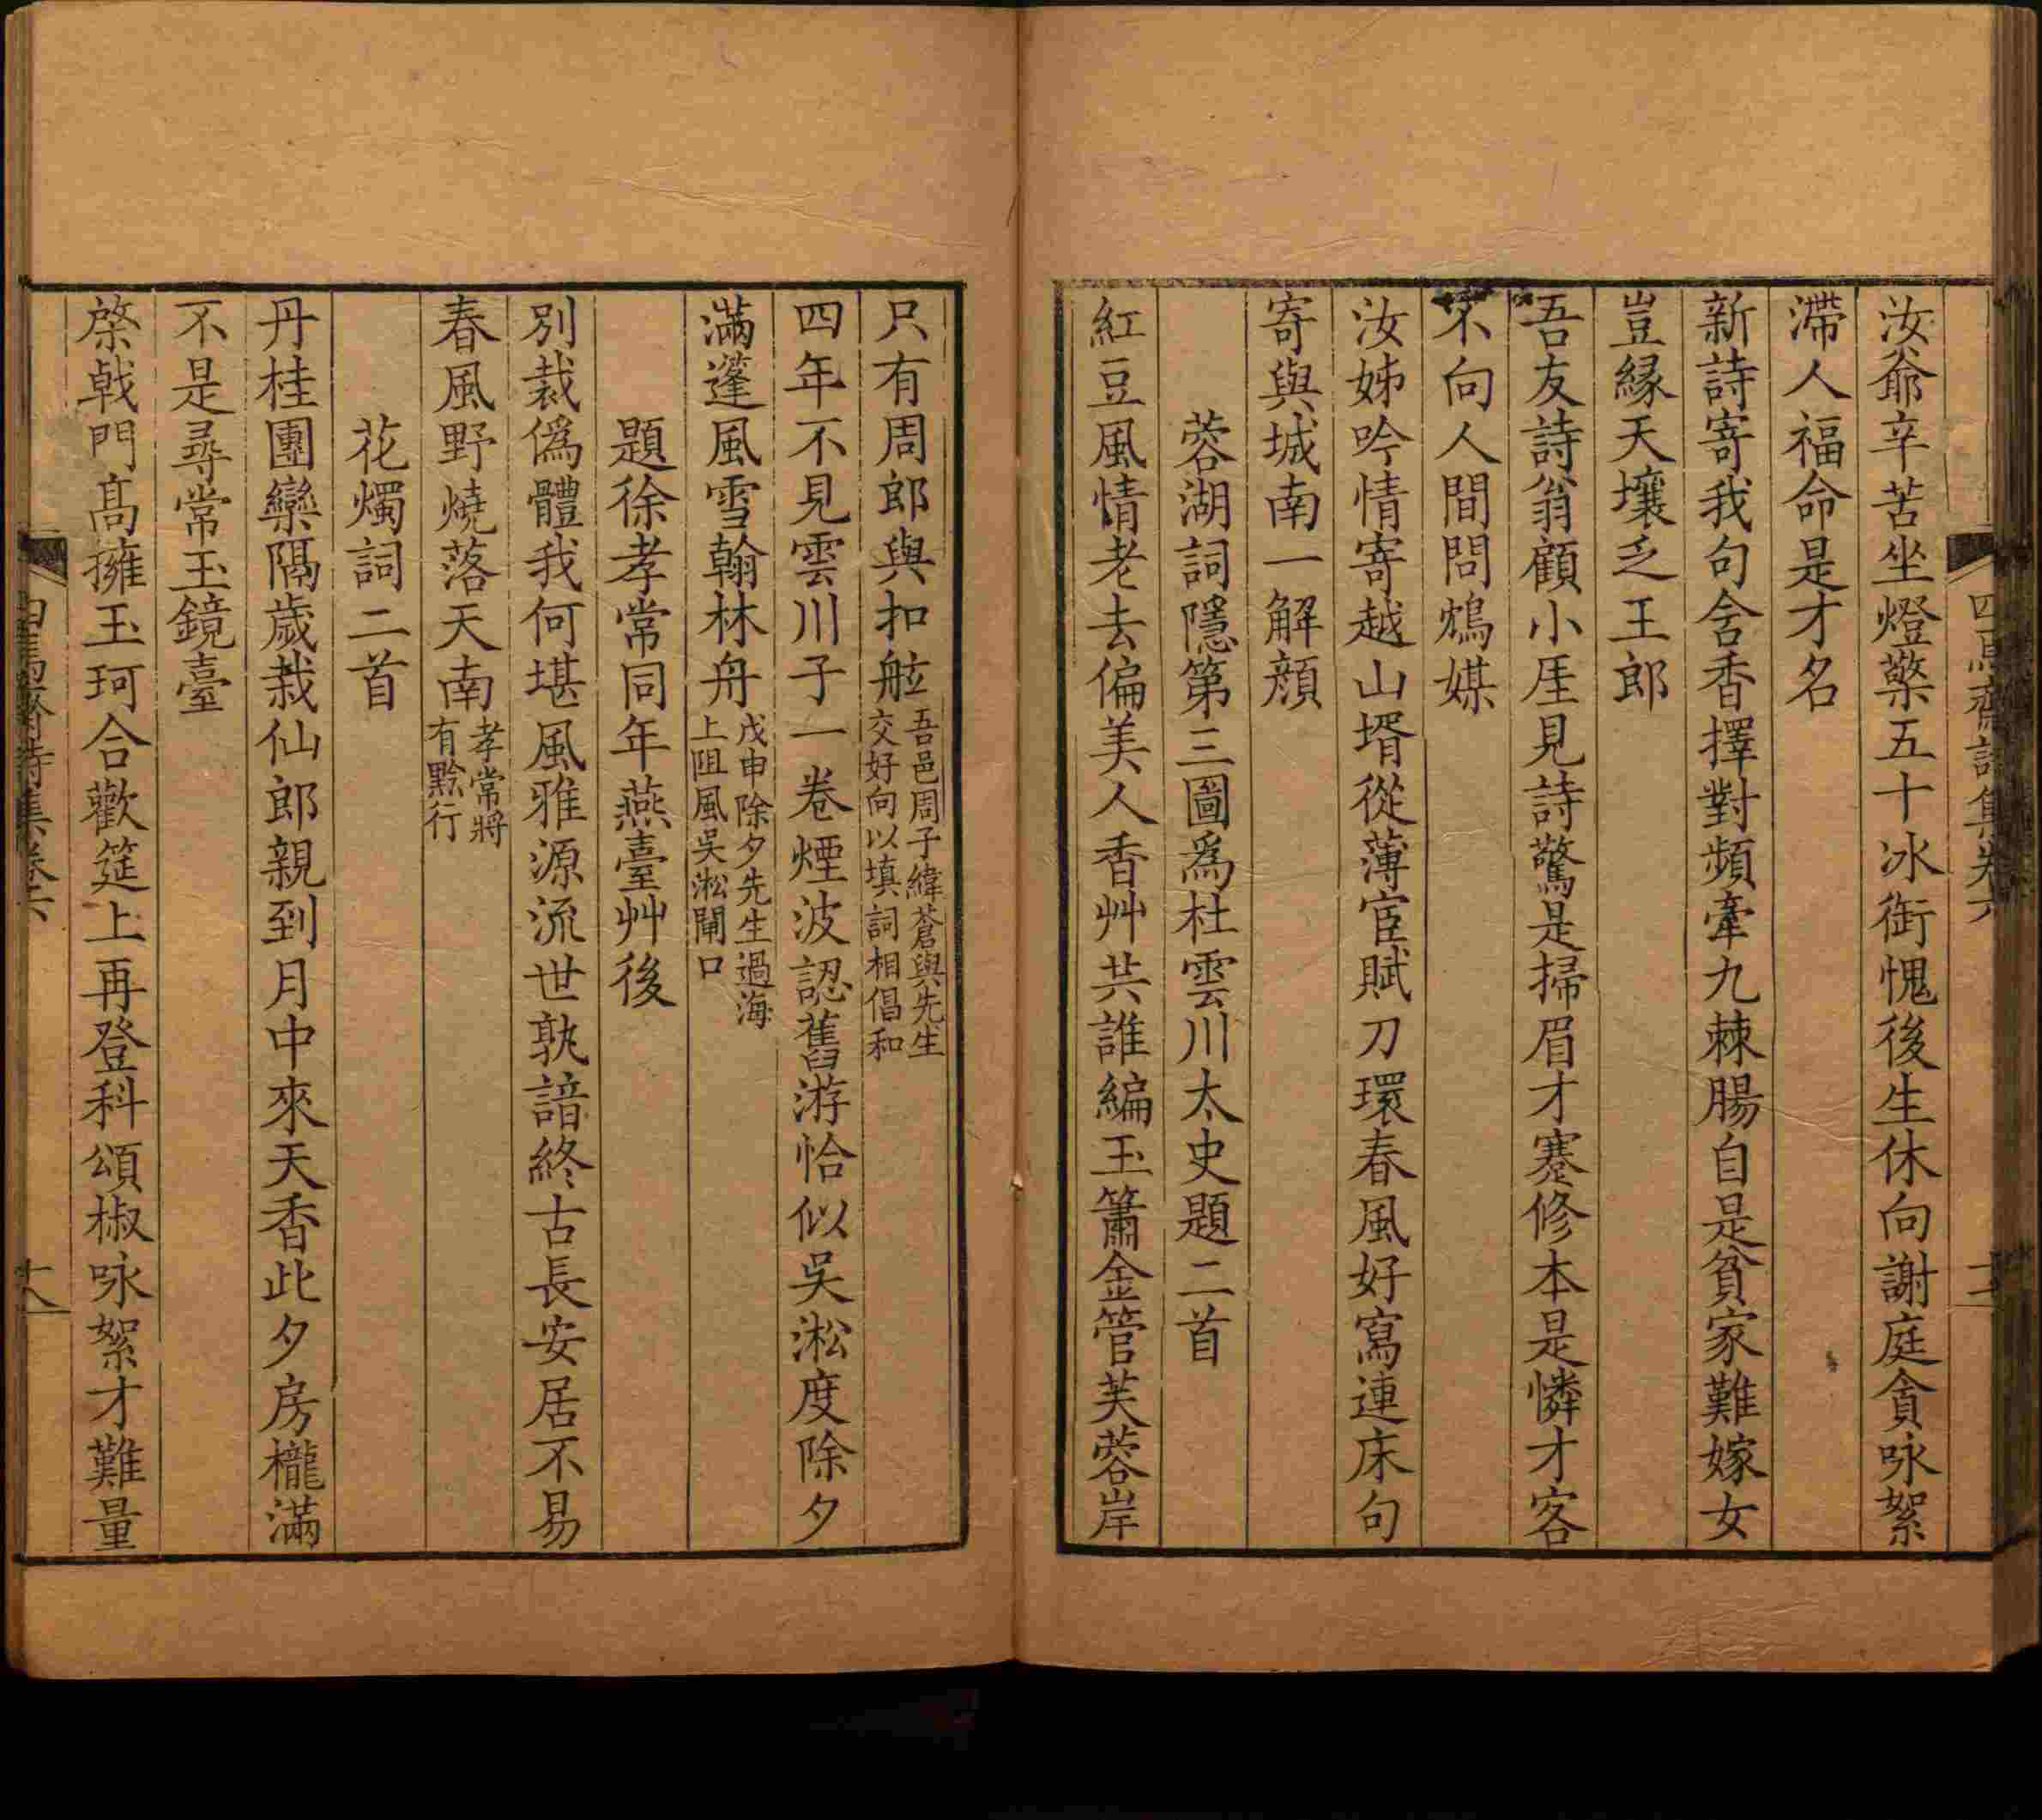 汝爺辛苦坐燈檠五十冰銜愧後生休向謝庭貪咏絮
滯人福命是才名
新詩寄我句含香擇對頻牽九棘腸自是貧家難嫁女
豈緣天壤乏王郎
吾友詩翁顧小厓見詩驚是掃眉才蹇修本是憐才客
不向人間問鴆媒
汝姊吟情寄越山壻從薄宦賦刀環春風好寫連床句
寄與城南一解顏
蓉湖詞隱第三圖爲杜雲川太史題二首
紅豆風情老去偏美人香艸共誰編玉簫金管芙蓉岸
只有周郎與扣舷
吾邑周子緯蒼與先生
交好向以填詞相倡和
四年不見雲川子一卷煙波認舊游恰似吳淞度除夕
滿篷風雪翰林舟
戊申除夕先生過海
上阻風吳淞閘口
題徐孝常同年燕臺艸後
別裁僞體我何堪風雅源流世孰諳終古長安居不易
春風野燒落天南
孝常將
有黔行
花燭詞二首
丹桂團欒隔歲栽仙郎親到月中來天香此夕房櫳滿
不是尋常玉鏡臺
棨戟門高擁玉珂合歡筵上再登科頌椒咏絮才難量
四焉齋詩集卷六
十八